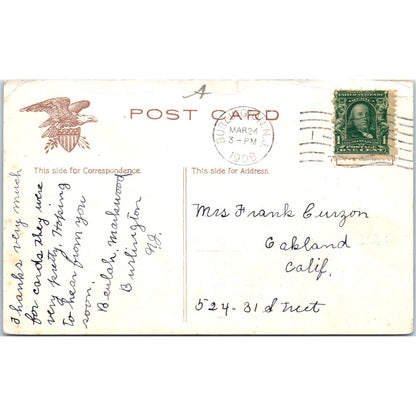 A
POST CARD
BURLINGTON, N.J.
MAR 24
3-PM
1908
UNITED STATES OF AMERICA
1 POSTAGE 1
ONE CENT
This side for Correspondence.
This side for Address.
Thanks very much
for cards they were
very pretty. Hoping
to hear from you
soon.
Beulah Markwood
Burlington
N.J.
Mrs Frank Curzon
Oakland
Calif.
524-31 Street